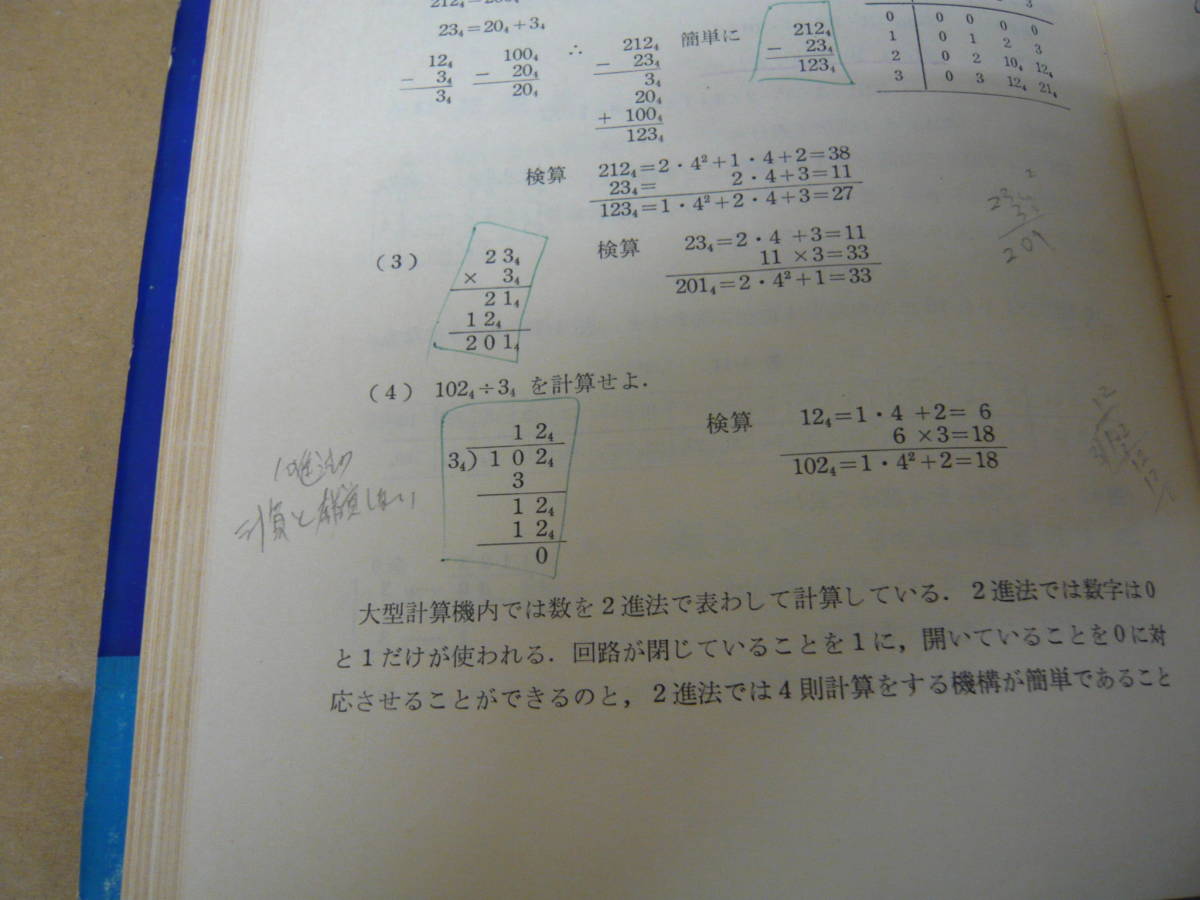 23₄=20₄+3₄
12₄
- 3₄
3₄
100₄
- 20₄
20₄
∴
212₄
- 23₄
3₄
20₄
+ 100₄
123₄
簡単に
212₄
- 23₄
123₄
0 0 0 0 0
1 0 1 2 3
2 0 2 10₄ 12₄
3 0 3 12₄ 21₄
検算 212₄=2・4²+1・4+2=38
23₄= 2・4+3=11
123₄=1・4²+2・4+3=27
(3)
2 3₄
× 3₄
2 1₄
1 2₄
2 0 1₄
検算 23₄=2・4 +3=11
11 ×3=33
201₄=2・4²+1=33
201
(4) 102₄÷3₄ を計算せよ.
1 2₄
3₄)1 0 2₄
3
1 2₄
1 2₄
0
検算 12₄=1・4 +2= 6
6 ×3=18
102₄=1・4²+2=18
12
10進法の
計算と
大型計算機内では数を2進法で表わして計算している. 2進法では数字は0
と1だけが使われる. 回路が閉じていることを1に, 開いていることを0に対
応させることができるのと, 2進法では4則計算をする機構が簡単であること